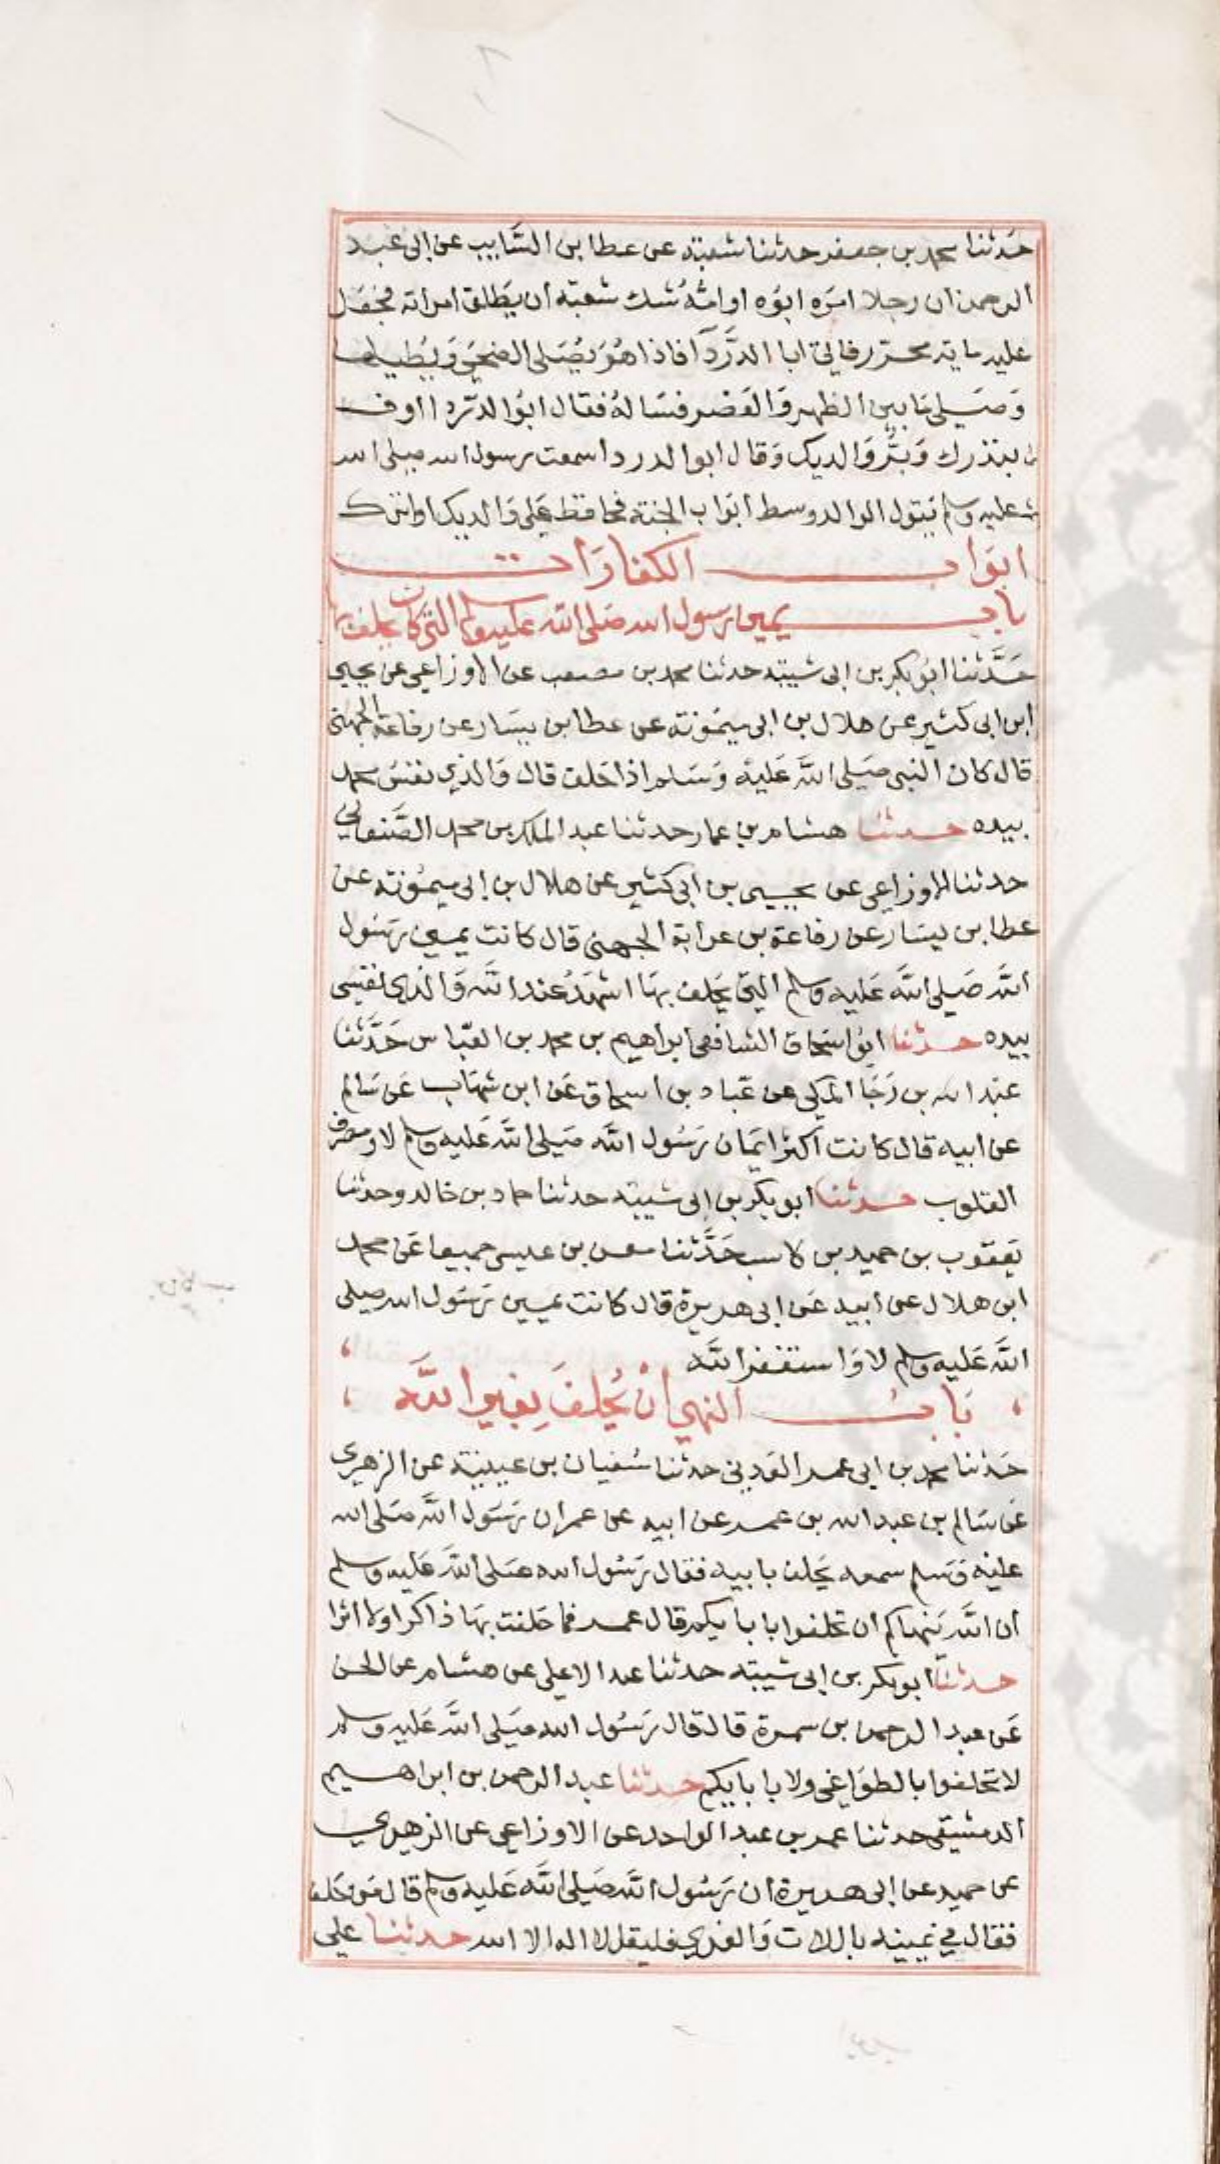 حَدثنا محمد بن جعفر حدثنا شعبة عن عطا بن السَّايب عن ابى عبد
الرحمن ان رجلا امَره ابوُه او امُّهُ شك شعبة ان يطلق امراته فجعَل
عليه ماية محرّر فاتى ابا الدَّردَآ فاذا هُوَ يصَلى الضحى وَيُطيلها
وَصَلى مَا بين الظهر وَالعَصر فسَالهُ فقال ابوُ الدّردا اوف
بنذرك وَبرَّ وَالديك وَقال ابو الدردا سمعت رسول الله صلى الله
عليه وسلم يقول الوالد وسط ابوَاب الجنة فحافظ على وَالديك او اترك
ابوَاب الكفارَات
باب يمين رسول الله صَلى الله عليه وسلم التى كان يحلف بها
حَدَّثنا ابوُ بكر بن ابى شيبة حدثنا محمد بن مصعب عن الاوزاعي عن يحيى
ابن ابى كَثير عن هلال بن ابى ميمُونة عن عطا بن يسَار عن رفاعة الجهنى
قال كان النبى صَلى الله عَليْه وَسَلم اذا حَلف قال وَالذي نفسُ محمد
بيده حدثنا هشام بن عمار حدثنا عبد الملك بن محمد الصَّنعاني
حدثنا الاوزاعي عن يحيى بن ابى كثير عن هلال بن ابى ميمُونة عن
عطا بن يسَار عن رفاعة بن عرابة الجهنى قال كانت يمين رسُول
الله صَلى الله عَليه وسلم التى يحَلف بهَا اشهَدُ عند الله وَالذى نفسى
بيده حدثنا ابوُ اسحَاق الشافعى ابراهيم بن محمد بن العبّاس حَدَّثنا
عبْد الله بن رَجَا المكي عن عَباد بن اسحاق عَن ابن شهَاب عَن سَالم
عن ابيه قال كانت اكثر ايمَان رَسُول الله صَلى الله عَليه وسلم لا ومصرف
القلوب حدثنا ابو بكر بن ابى شيبة حدثنا حماد بن خالد وحدثنا
يَعقوب بن حميد بن كاسب حَدَّثنا معن بن عيسى جميعا عَن محمد
ابن هلال عن ابيه عَن ابى هريرة قال كانت يمين رَسُول الله صلى
الله عَليه وسلم لا وَاستغفر الله
بَابُ النهي انْ يُحلفَ بِغيرِ اللَّه
حَدثنا محمد بن ابى عمر العَدنى حدثنا سُفيان بن عيينة عن الزهرى
عَن سَالم بن عبد الله بن عمر عن ابيه عن عمر ان رَسُول الله صَلى الله
عليْه وَسَلم سمعه يحَلف بابيه فقال رَسُول الله صَلى الله عَليه وسلم
ان الله يَنهاكم ان تحلفوا بابايكم قال عمر فما حَلفت بهَا ذاكرا ولا اثرا
حدثنا ابو بكر بن ابى شيبة حدثنا عبد الاعلى عن هشام عن الحسن
عَن عبد الرحمن بن سمرة قال قال رَسُول الله صَلى الله عَليه وسلم
لا تحلفوا بالطوَاغى ولا بابايكم حدثنا عبد الرحمن بن ابراهيم
الدمشقى حدثنا عمر بن عبد الواحد عن الاوزاعي عن الزهري
عن حميد عن ابى هريرة ان رَسُول الله صَلى الله عَليه وسلم قال مَن حَلف
فقال في يَمينه باللات وَالعزي فليقل لا اله الا الله حدثنا على